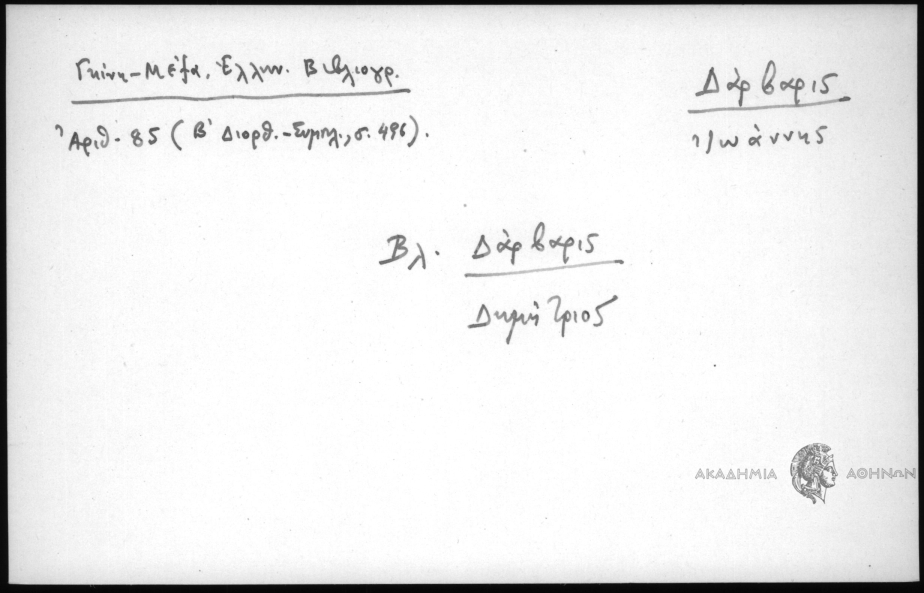 Γκίνη-Μέξα, Ἑλλην. Βιβλιογρ.
Ἀριθ. 85 (Β' Διορθ.-Συμπλ., σ. 496).
Δάρβαρις
Ἰωάννης
Βλ. Δάρβαρις
Δημήτριος
ΑΚΑΔΗΜΙΑ ΑΘΗΝΩΝ